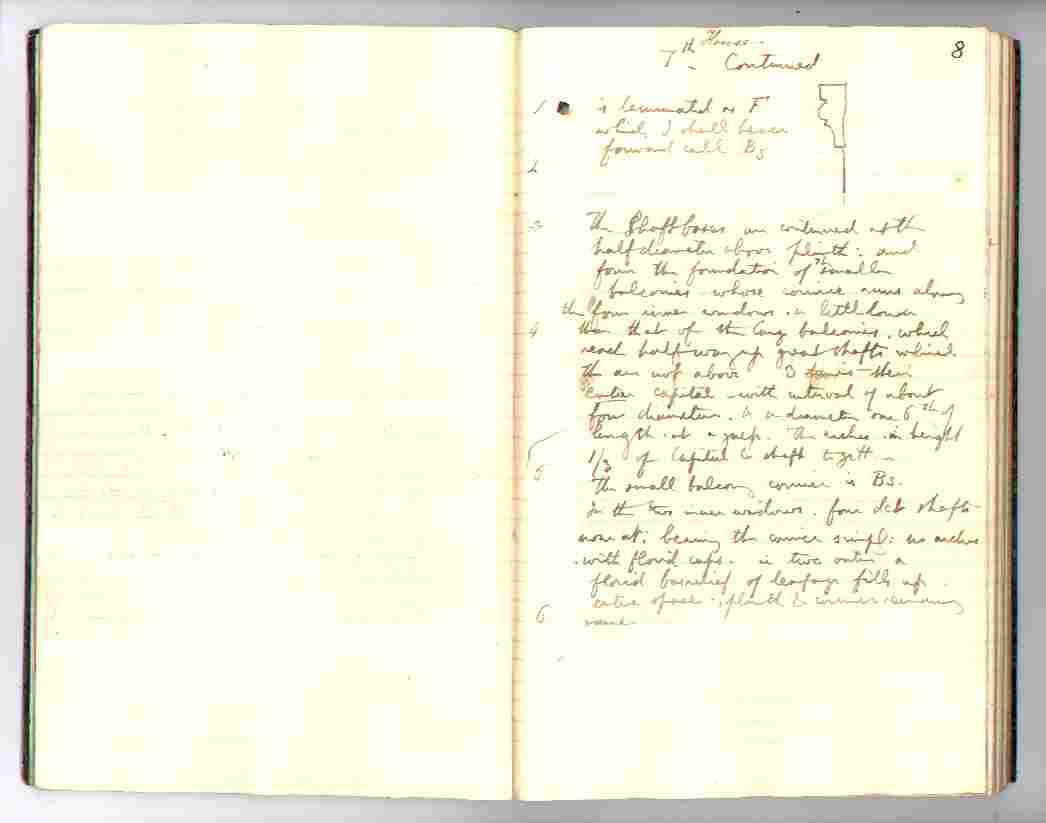 8
7th House
Continued
1 is terminated as F
which I shall hence
forward call B3
2
3 The Shaft bases are continued at the
half diameter above plinth: and
form the foundation of smaller
balconies whose cornice runs along
the four inner windows. a little lower
4 than that of the long balconies, which
reach half way up great shafts which
are not above 3 their
entire capital with interval of about
four diameters. a diameter one 6th of
length at a guess. The arches in height
1/3 of Capital & shaft together
5 The small balcony cornice is B3.
In the two inner windows. four shafts
bearing the cornice simply: no arches
with florid caps. in two outer a
florid basrelief of leafage fills up
entire space: plinth & cornice remaining
6 same